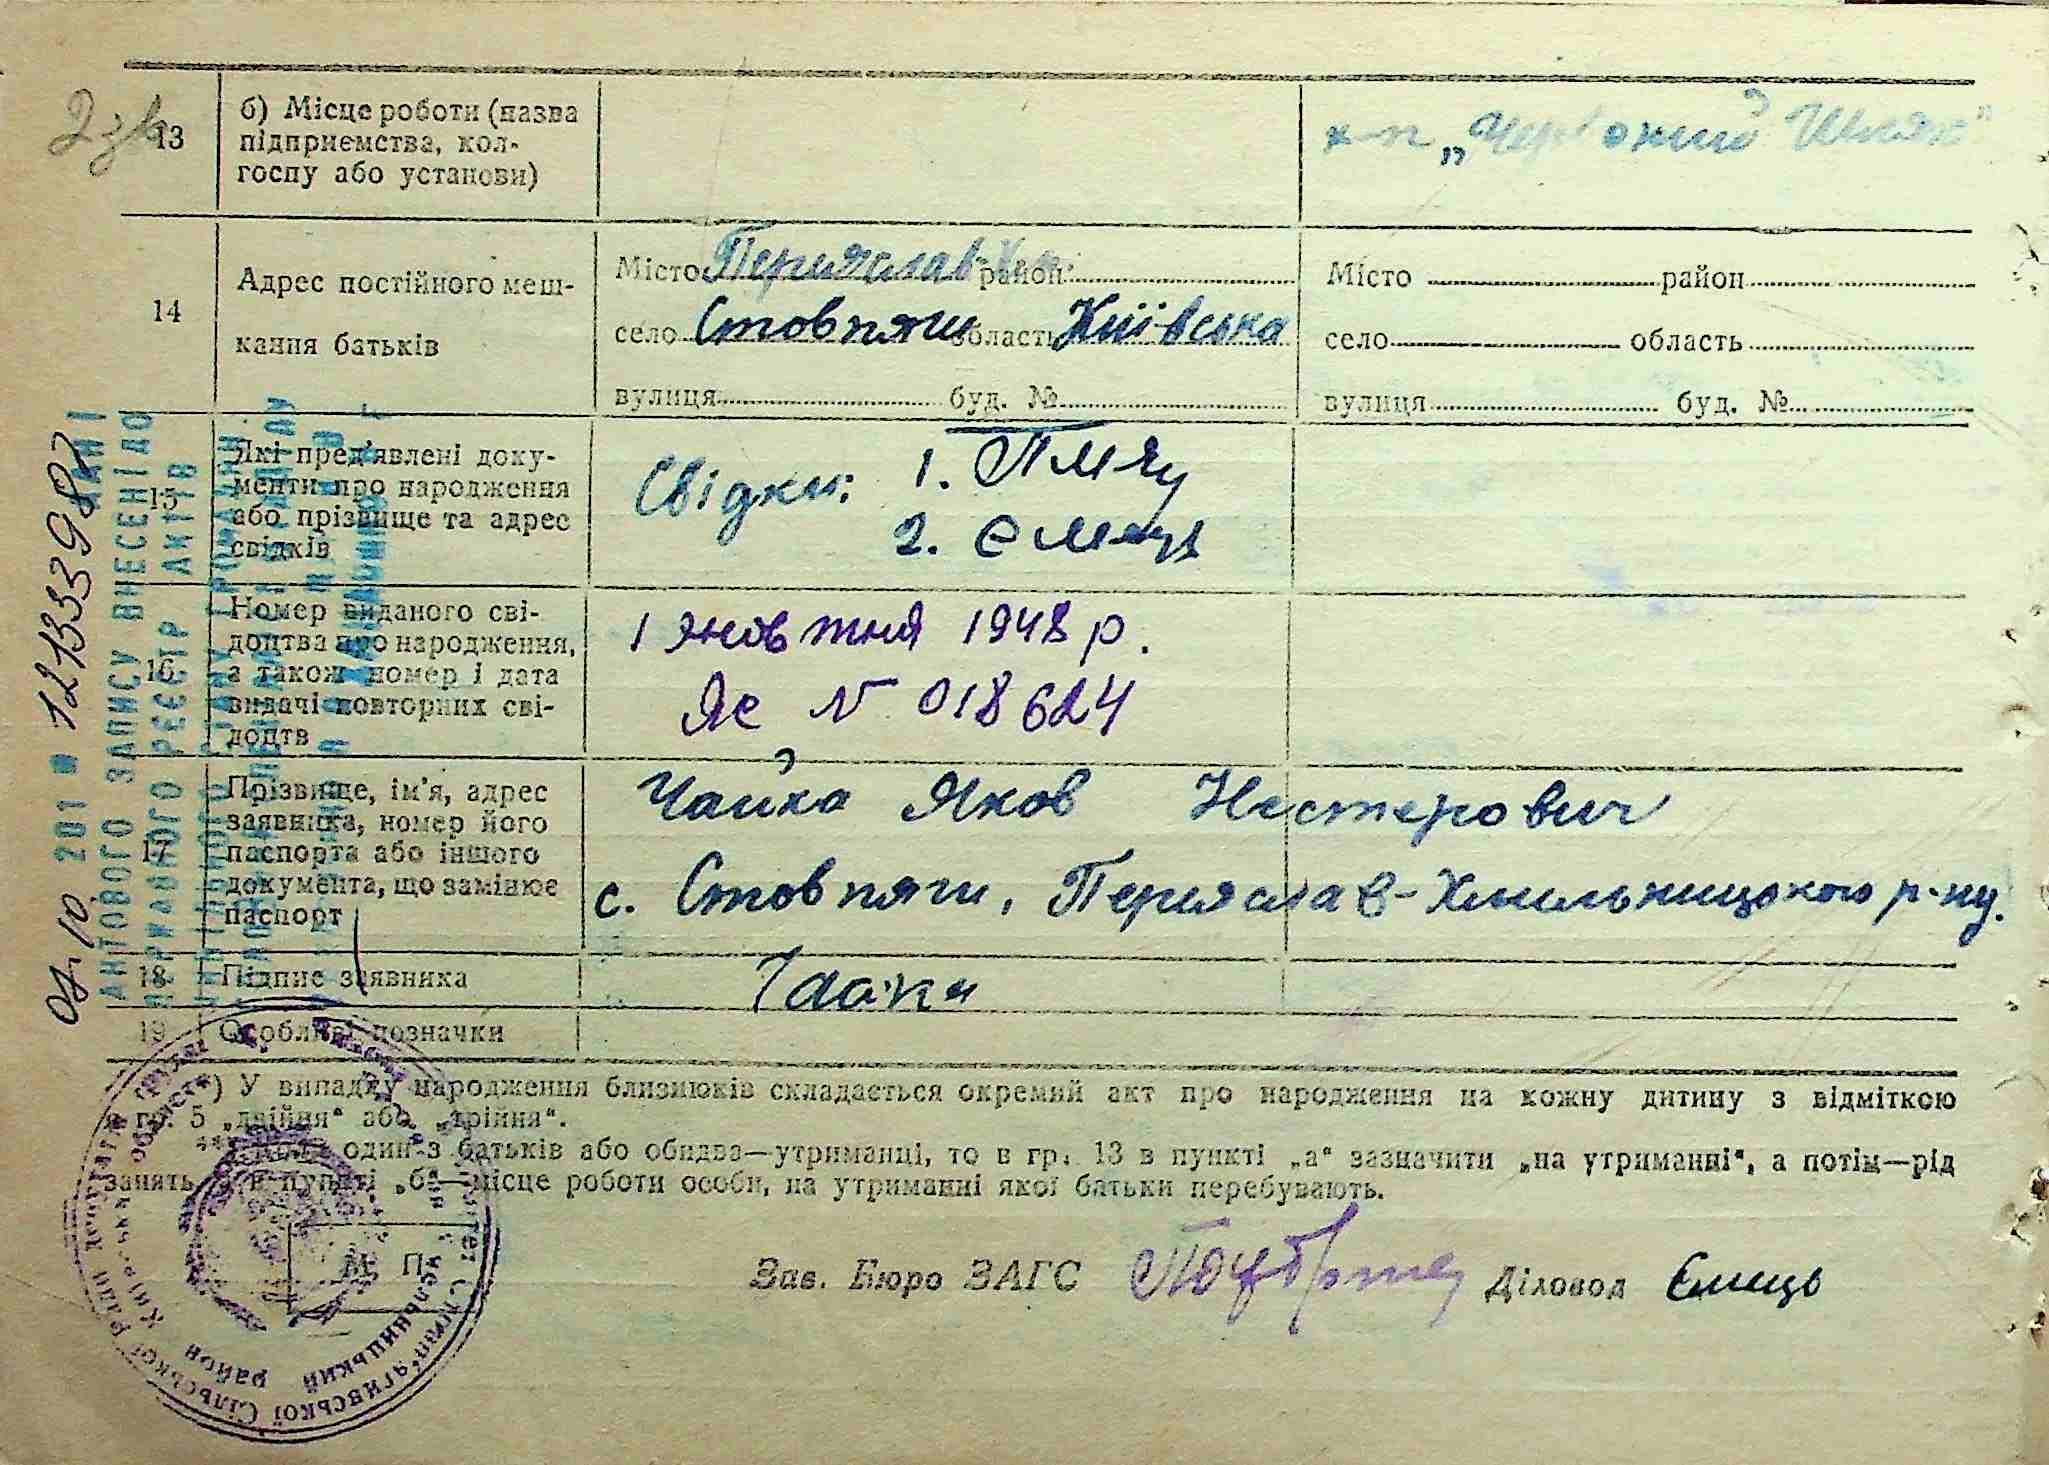 13 б) Місце роботи (назва
підприємства, кол-
госпу або установи)
к-п „Червоний Шлях"
14 Адрес постійного меш-
кання батьків
Місто Переяслав-Хм. район
село Стовпяги область Київська
вулиця буд. №
Місто район
село область
вулиця буд. №
15 Які пред'явлені доку-
менти про народження
або прізвище та адрес
свідків
Свідки: 1.
2. Ємець
16 Номер виданого сві-
доцтва про народження,
а також номер і дата
видачі повторних сві-
доцтв
1 жовтня 1948 р.
ЯЄ № 018624
17 Прізвище, ім'я, адрес
заявника, номер його
паспорта або іншого
документа, що замінює
паспорт
Чайка Яков Нестерович
с. Стовпяги, Переяслав-Хмельницького р-ну.
18 Підпис заявника
Чайка
19 Особливі позначки
*) У випадку народження близнюків складається окремий акт про народження на кожну дитину з відміткою
в гр. 5 „двійня" або „трійня".
**) Коли один з батьків або обидва—утриманці, то в гр. 13 в пункті „а" зазначити „на утриманні", а потім—рід
занять, а в пункті „б"—місце роботи особи, на утриманні якої батьки перебувають.
М. П.
Зав. Бюро ЗАГС Діловод Ємець
ЗАПИСУ ВНЕСЕНІ ДО
РЕЄСТР АКТІВ
201